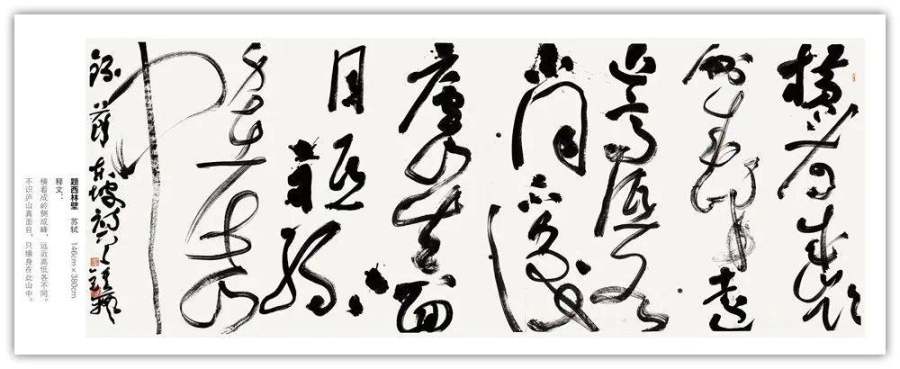 横看成岭
侧成峰远
近高低各
不同不识
庐山真面
目只缘
身在此山
中
东坡诗
题西林壁 苏轼 146cm×380cm
释文：
横看成岭侧成峰，远近高低各不同。
不识庐山真面目，只缘身在此山中。